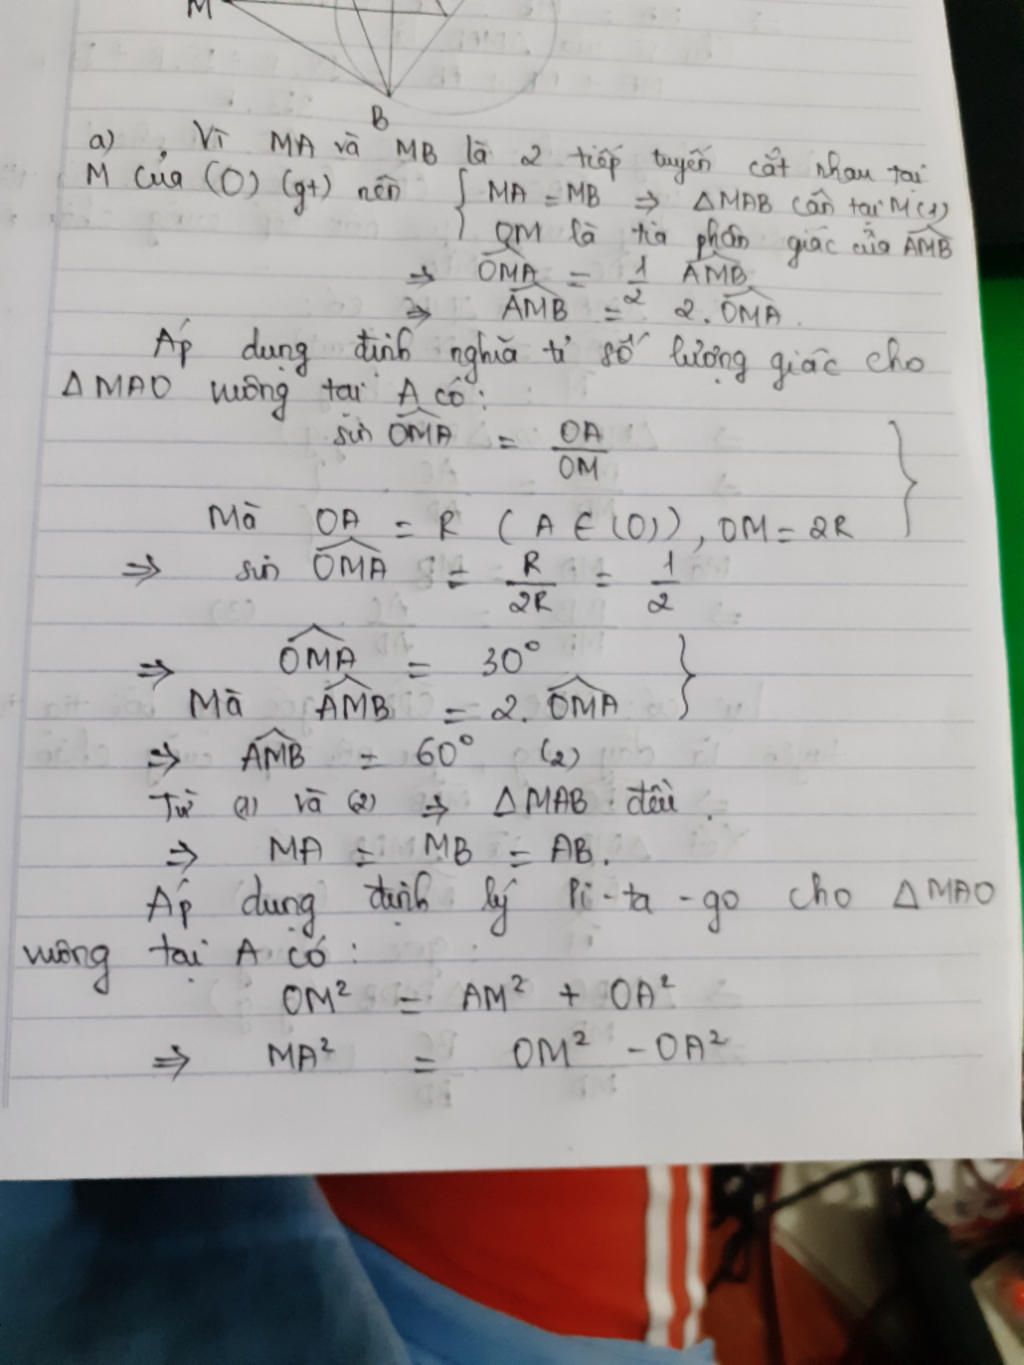 M
B
a) , Vì MA và MB là 2 tiếp tuyến cắt nhau tại
M của (O) (gt) nên { MA = MB => ΔMAB cân tại M (1)
OM là tia phân giác của \widehat{AMB}
=> \widehat{OMA} = \frac{1}{2} \widehat{AMB}
=> \widehat{AMB} = 2. \widehat{OMA}.
Áp dụng định nghĩa tỉ số lượng giác cho
ΔMAO vuông tại A có:
sin \widehat{OMA} = \frac{OA}{OM}
Mà OA = R (A ∈ (O)), OM = 2R }
=> sin \widehat{OMA} = \frac{R}{2R} = \frac{1}{2}
=> \widehat{OMA} = 30°
Mà \widehat{AMB} = 2. \widehat{OMA} }
=> \widehat{AMB} = 60° (2)
Từ (1) và (2) => ΔMAB đều.
=> MA = MB = AB.
Áp dụng định lý Pi-ta-go cho ΔMAO
vuông tại A có:
OM² = AM² + OA²
=> MA² = OM² - OA²